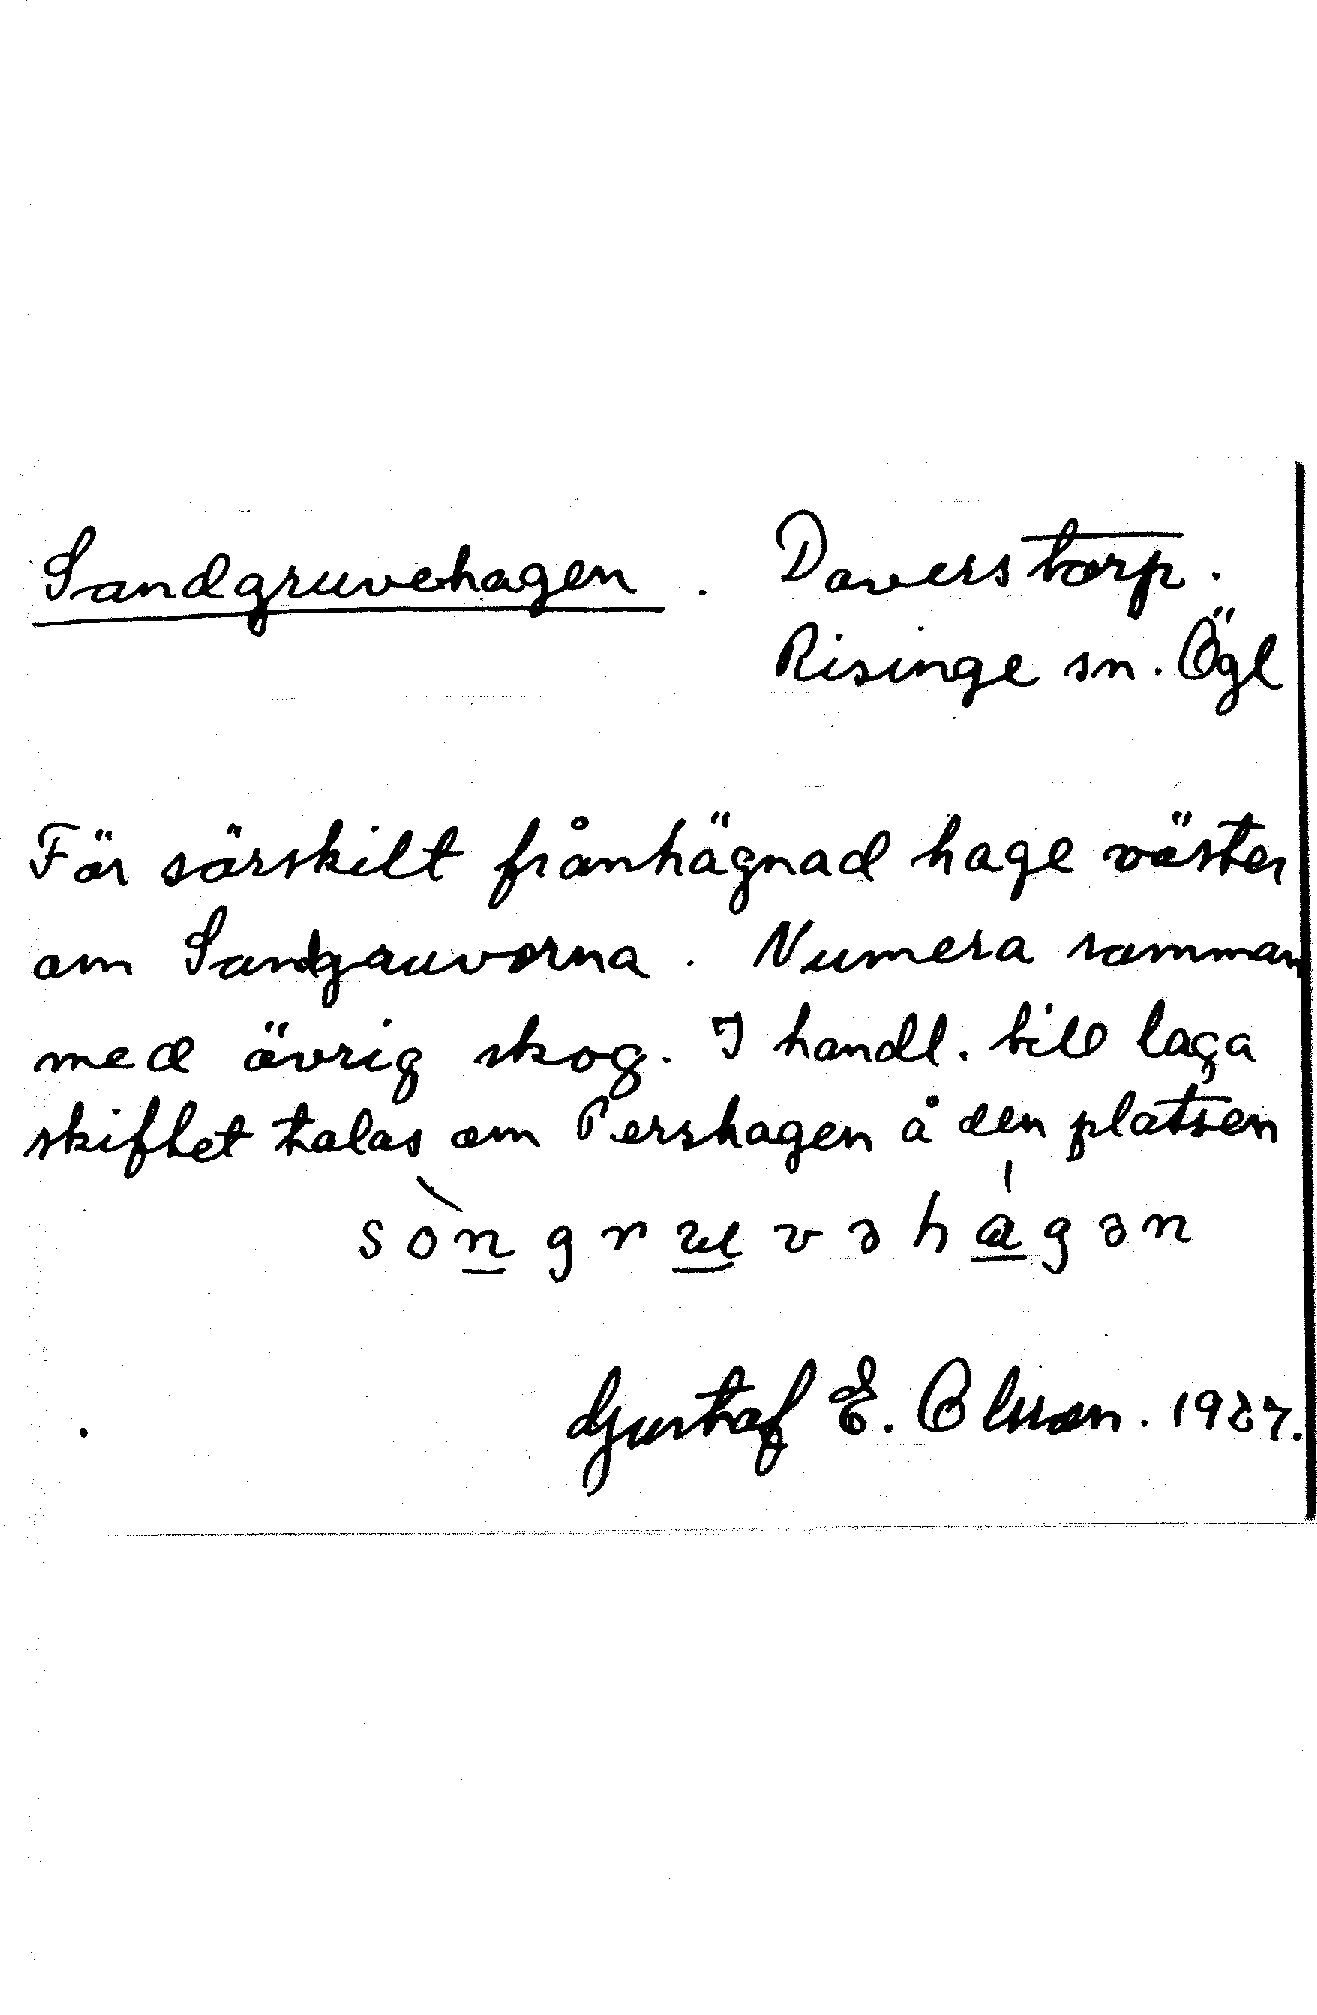 Sandgruvehagen. Daverstorp.
Risinge sn. Ögl
För särskilt frånhägnad hage väster
om Sandgruvorna. Numera samman
med övrig skog. I handl. till laga
skiftet talas om Pershagen å den platsen
sòngruvəhágən
Gustaf E. Olsson. 1927.